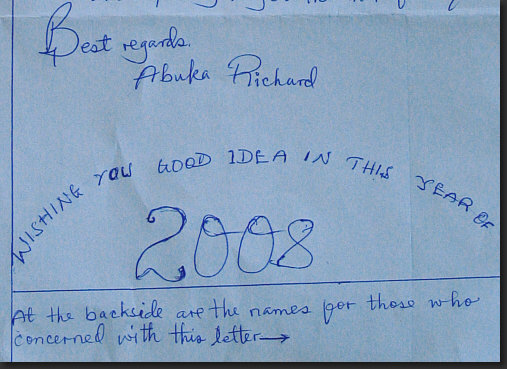 Best regards.
Abuka Richard
WISHING YOU GOOD IDEA IN THIS YEAR OF
2008
At the backside are the names for those who
concerned with this letter→